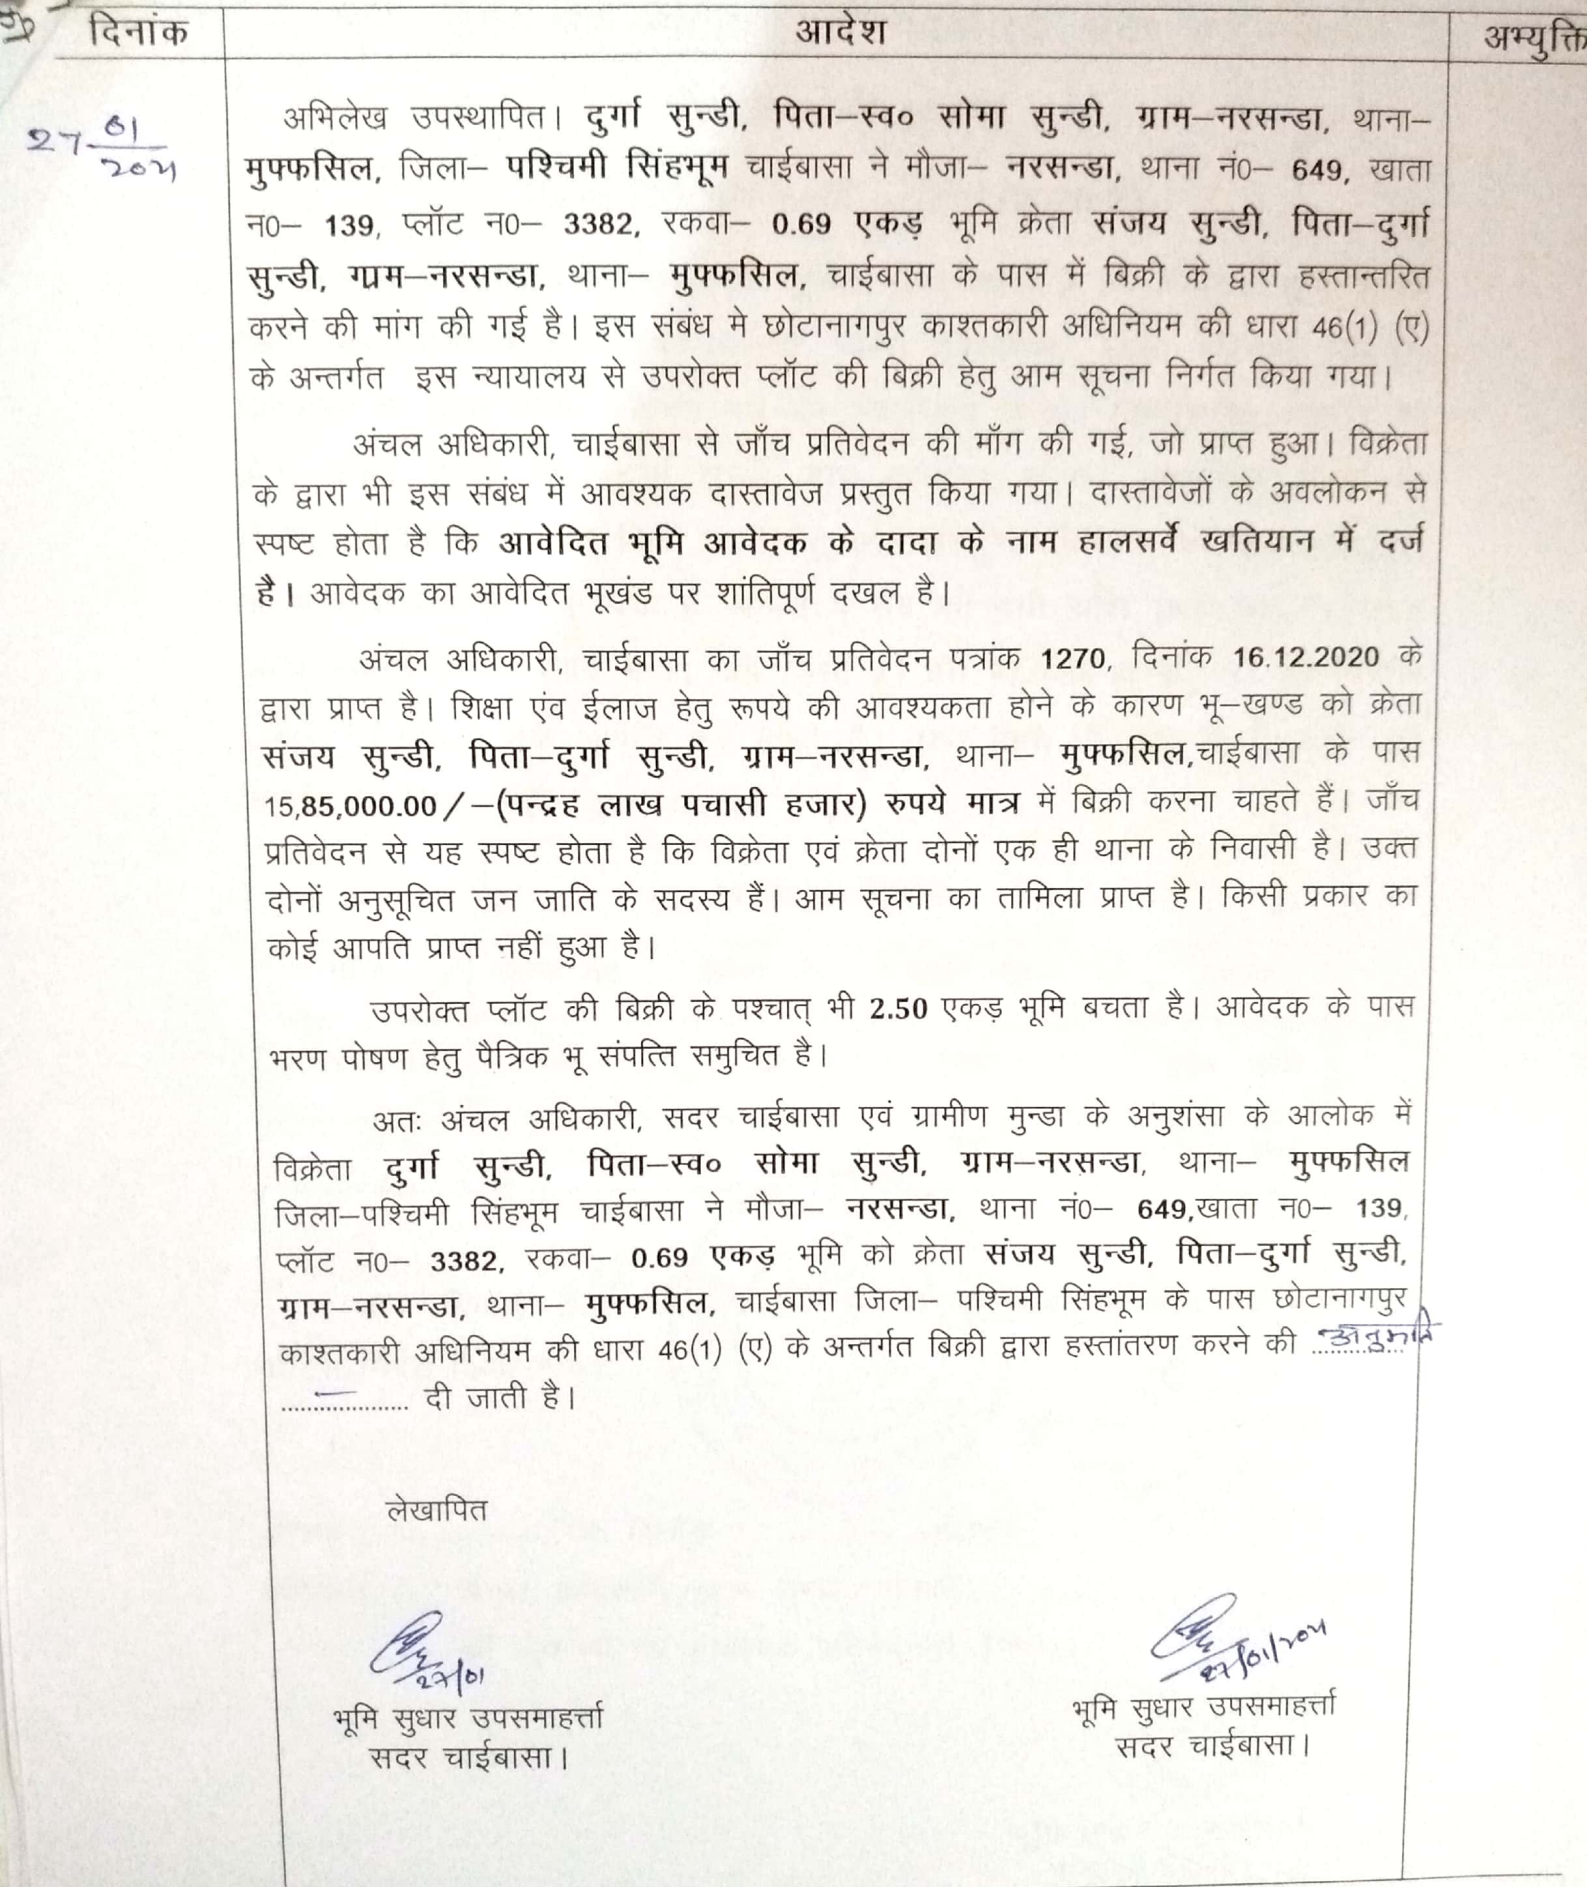 दिनांक
आदेश
अभ्युक्ति
27 01
2021
अभिलेख उपस्थापित। दुर्गा सुन्डी, पिता–स्व० सोमा सुन्डी, ग्राम–नरसन्डा, थाना–
मुफ्फसिल, जिला– पश्चिमी सिंहभूम चाईबासा ने मौजा– नरसन्डा, थाना नं0– 649, खाता
न0– 139, प्लॉट न0– 3382, रकवा– 0.69 एकड़ भूमि क्रेता संजय सुन्डी, पिता–दुर्गा
सुन्डी, ग्राम–नरसन्डा, थाना– मुफ्फसिल, चाईबासा के पास में बिक्री के द्वारा हस्तान्तरित
करने की मांग की गई है। इस संबंध मे छोटानागपुर काश्तकारी अधिनियम की धारा 46(1) (ए)
के अन्तर्गत इस न्यायालय से उपरोक्त प्लॉट की बिक्री हेतु आम सूचना निर्गत किया गया।
अंचल अधिकारी, चाईबासा से जाँच प्रतिवेदन की माँग की गई, जो प्राप्त हुआ। विक्रेता
के द्वारा भी इस संबंध में आवश्यक दास्तावेज प्रस्तुत किया गया। दास्तावेजों के अवलोकन से
स्पष्ट होता है कि आवेदित भूमि आवेदक के दादा के नाम हालसर्वे खतियान में दर्ज
है। आवेदक का आवेदित भूखंड पर शांतिपूर्ण दखल है।
अंचल अधिकारी, चाईबासा का जाँच प्रतिवेदन पत्रांक 1270, दिनांक 16.12.2020 के
द्वारा प्राप्त है। शिक्षा एंव ईलाज हेतु रूपये की आवश्यकता होने के कारण भू–खण्ड को क्रेता
संजय सुन्डी, पिता–दुर्गा सुन्डी, ग्राम–नरसन्डा, थाना– मुफ्फसिल,चाईबासा के पास
15,85,000.00/–(पन्द्रह लाख पचासी हजार) रुपये मात्र में बिक्री करना चाहते हैं। जाँच
प्रतिवेदन से यह स्पष्ट होता है कि विक्रेता एवं क्रेता दोनों एक ही थाना के निवासी है। उक्त
दोनों अनुसूचित जन जाति के सदस्य हैं। आम सूचना का तामिला प्राप्त है। किसी प्रकार का
कोई आपति प्राप्त नहीं हुआ है।
उपरोक्त प्लॉट की बिक्री के पश्चात् भी 2.50 एकड़ भूमि बचता है। आवेदक के पास
भरण पोषण हेतु पैत्रिक भू संपत्ति समुचित है।
अतः अंचल अधिकारी, सदर चाईबासा एवं ग्रामीण मुन्डा के अनुशंसा के आलोक में
विक्रेता दुर्गा सुन्डी, पिता–स्व० सोमा सुन्डी, ग्राम–नरसन्डा, थाना– मुफ्फसिल
जिला–पश्चिमी सिंहभूम चाईबासा ने मौजा– नरसन्डा, थाना नं0– 649,खाता न0– 139,
प्लॉट न0– 3382, रकवा– 0.69 एकड़ भूमि को क्रेता संजय सुन्डी, पिता–दुर्गा सुन्डी,
ग्राम–नरसन्डा, थाना– मुफ्फसिल, चाईबासा जिला– पश्चिमी सिंहभूम के पास छोटानागपुर
काश्तकारी अधिनियम की धारा 46(1) (ए) के अन्तर्गत बिक्री द्वारा हस्तांतरण करने की ...अनुमति
.................... दी जाती है।
लेखापित
27/01
27/01/2021
भूमि सुधार उपसमाहर्त्ता
सदर चाईबासा।
भूमि सुधार उपसमाहर्त्ता
सदर चाईबासा।